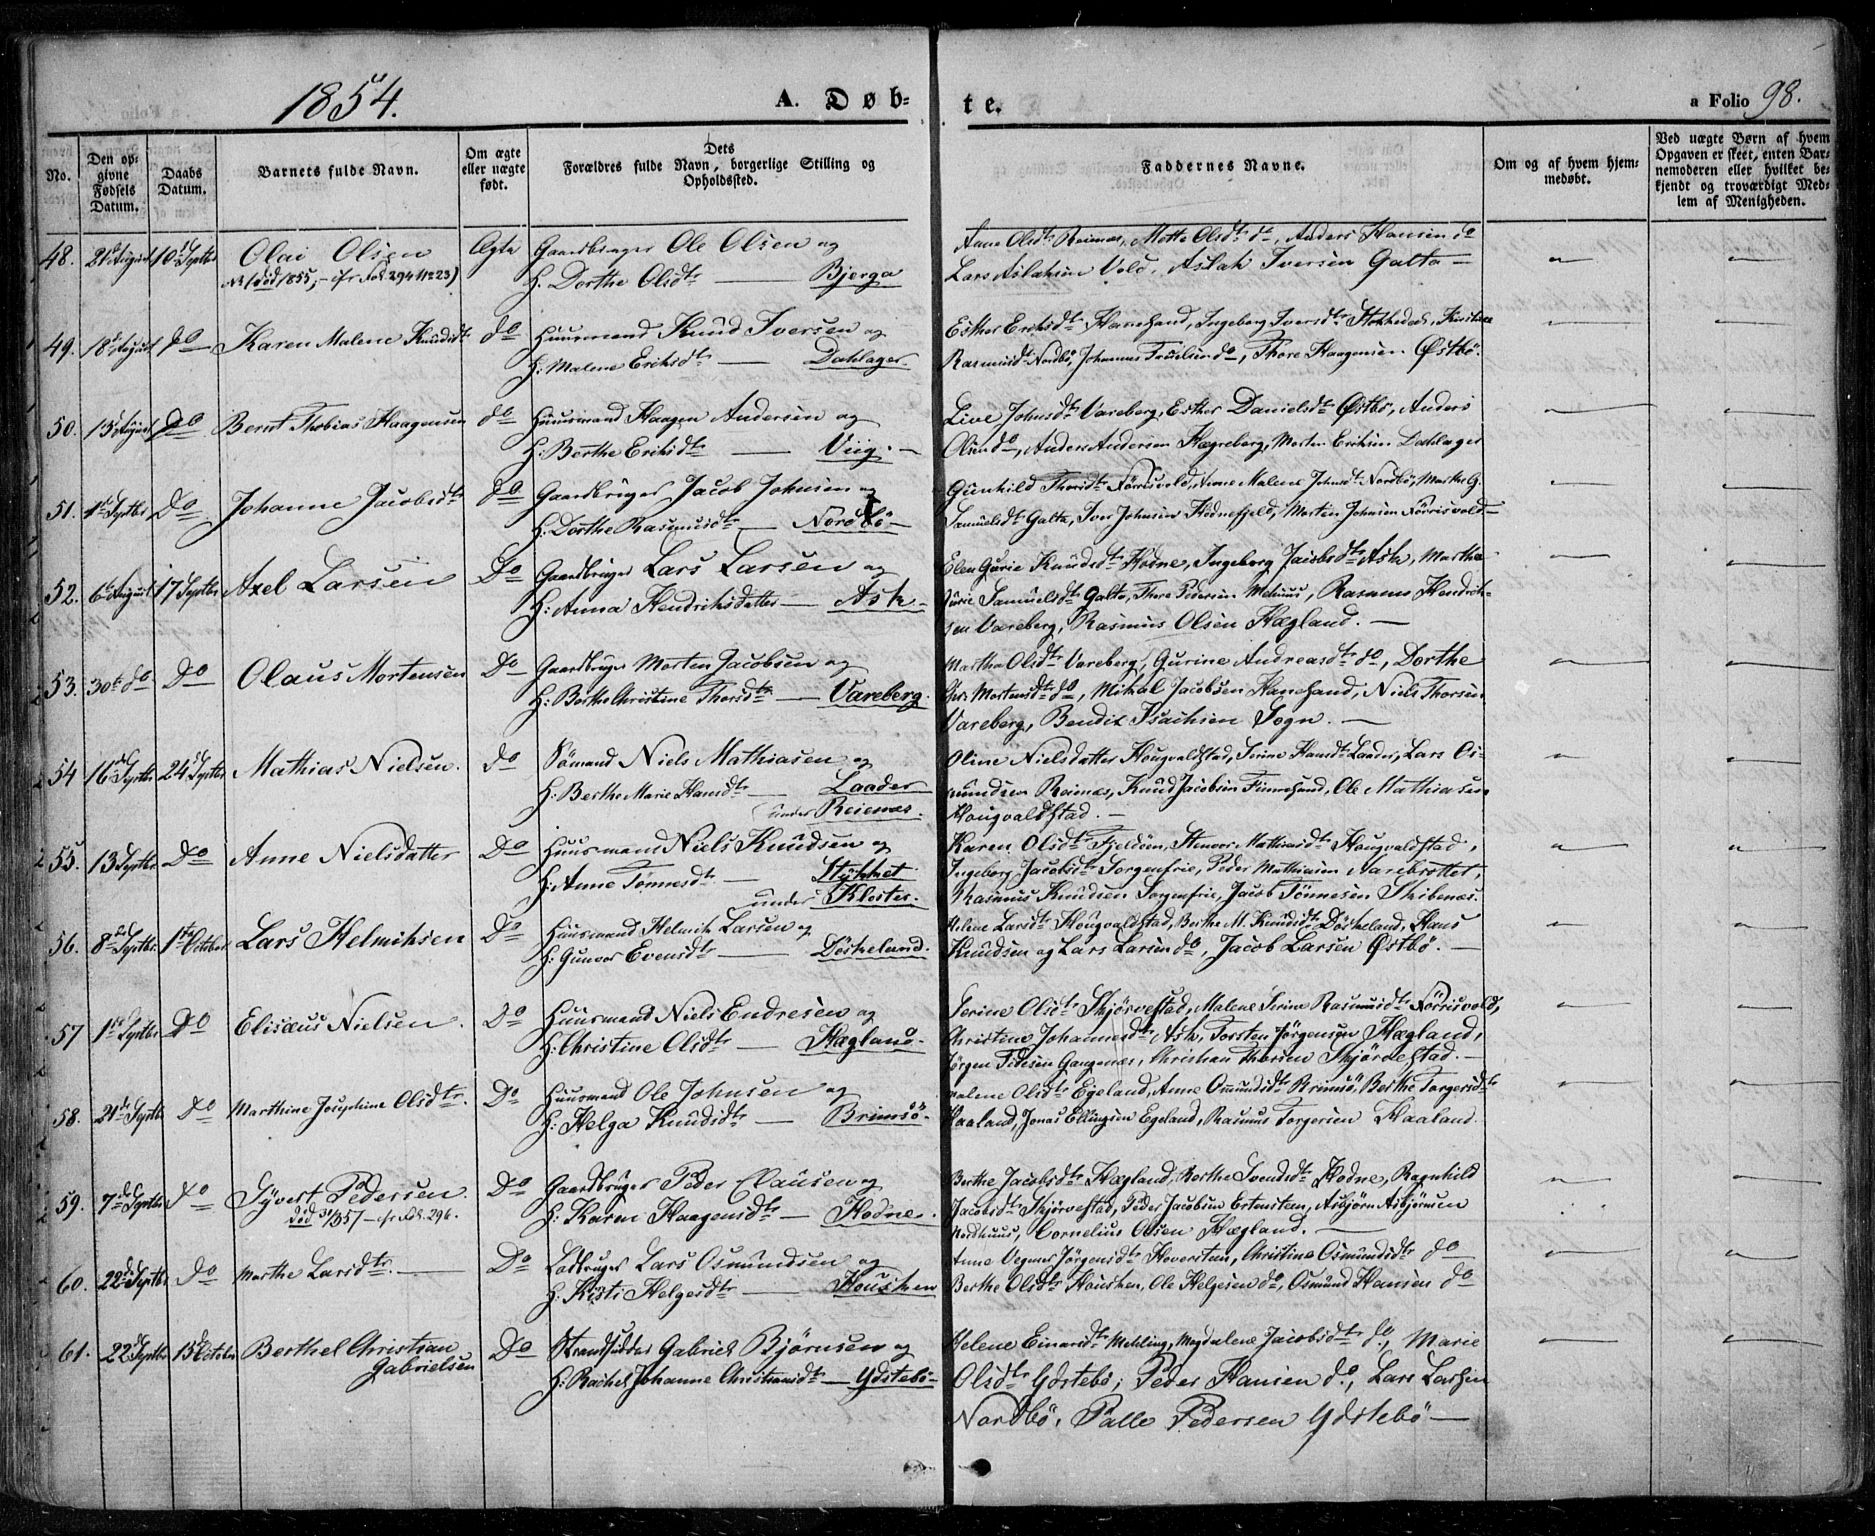 1854.
A. Døb-
te.
a Folio 98.
No.
Den op-
givne
Fødsels
Datum.
Daabs
Datum.
Barnets fulde Navn.
Om ægte
eller uægte
født.
Dets
Forældres fulde Navn, borgerlige Stilling og
Opholdssted.
Faddernes Navne.
Om og af hvem hjem-
medøbt.
Ved uægte Børn af hvem
Opgaven er skeet, enten Bar-
nemoderen eller hvilket be-
kjendt og troværdigt Med-
lem af Menigheden.
48. 21 August 10 Septbr Olai Olsen Ægte Gaardbruger Ole Olsen og
H. Dorthe Olsdtr — Bjerga
Anne Olsdtr Reienæs, Mette Olsdtr do, Anders Hansen do
Lars Aslaksen Vold, Aslak Iversen Galta —
49. 18 August do Karen Malene Knudsdtr do Huusmand Knud Iversen og
H. Malene Eriksdtr — Dahlager.
Esther Eriksdtr Hanesand, Ingeborg Iversdtr
Rasmusdtr Nordbø, Johannes Troelsen do, Thore Haagensen Østbø.
50. 15 August do Bernt Thobias Haagensen do Huusmand Haagen Andersen og
H. Berthe Eriksdtr — Viig. —
Live Johnsdtr Vareberg, Esther Danielsdtr Østbø, Anders
Olsen do, Anders Andersen Hægreberg, Morten Eriksen Dahlager
51. 1 Septbr Do Johanne Jacobsdtr do Gaardbruger Jacob Johnsen og
H. Dorthe Rasmusdtr — Nordbø —
Gunhild Thorsdtr Førrisvold, Anne Malene Johnsdtr Nordbø, Marthe G.
Samuelsdtr Galta, Iver Johnsen Hodnefjeld, Morten Johnsen Førrisvold —
52. 6 August 17 Septbr Axel Larsen Do Gaardbruger Lars Larsen og
H. Anna Hendriksdatter — Ask —
Elen Gurie Knudsdtr Hodne, Ingeborg Jacobsdtr Ask, Marthe
Gurie Samuelsdtr Galta, Thore Pedersen Meknes, Rasmus Hendrik-
sen Vareberg, Rasmus Olsen Hægland. —
53. 30 do Do Olaus Mortensen Do Gaardbruger Morten Jacobsen og
H. Berthe Christine Thorsdtr — Vareberg.
Martha Olsdtr Vareberg, Gurine Andreasdtr do, Dorthe
Chr. Mortensdtr do, Mikal Jacobsen Hanesand, Niels Thorsen
Vareberg, Bendix Isachsen Sogn. —
54 16 Septbr 24 Septbr Mathias Nielsen. do Sømand Niels Mathiasen og
H. Berthe Marie Hansdtr — Laader
under Reienæs.
Oline Nielsdatter Hougvaldstad, Serine Hansdtr Laader, Lars Os-
mundsen Reienæs, Knud Jacobsen Finnesand, Ole Mathiasen
Hougvaldstad. —
55. 13 Septbr Do Anne Nielsdatter Do Huusmand Niels Knudsen og
H. Anne Tønnesdtr — Stykket
under Kloster.
Karen Olsdtr Fjeldøen, Stenvor Mathiasdtr Hougvaldstad,
Ingeborg Jacobsdtr Sorgenfrie, Peder Mathiasen Aarebrottet,
Rasmus Knudsen Sorgenfrie, Jacob Tønnesen Skibenes.
56. 8 Septbr 1 October Lars Helmiksen Do Huusmand Helmik Larsen og
H. Gunvor Evensdtr — Døskeland.
Helene Larsdtr Hougvaldstad, Berthe M. Knudsdtr Døskeland, Hans
Knudsen og Lars Larsen do, Jacob Larsen Østbø. —
57 1 Septbr Do Elisæus Nielsen. Do Huusmand Niels Endresen og
H. Christine Olsdtr — Hægland.
Serine Olsdtr Skjørvestad, Malene Serine Rasmusdtr Førrisvold,
Christine Johannesdtr Ask, Torsten Jørgensen Hægland,
Jørgen Pedersen Gangenæs, Christian Thorsen Skjørvestad. —
58. 21 Septbr Do Marthine Josephine Olsdtr. Do Huusmand Ole Johnsen og
H. Helga Knudsdtr — Brimsø.
Malene Olsdtr Egeland, Anne Osmundsdtr Brimsø, Berthe Torgersdtr
Haaland, Jonas Ellingsen Egeland, Rasmus Torgersen Haaland.
59. 7 Septbr do Syvert Pedersen. Do Gaardbruger Peder Clausen og
død 3/1 57 — cfr Fol. 296.
H. Karen Haagensdtr — Hodne.
Berthe Jacobsdtr Hægland, Berthe Svendsdtr Hodne, Ragnhild
Jacobsdtr Skjørvestad, Peder Jacobsen Ertensten, Asbjørn Asbjørnsen
Nordhuus, Cornelius Olsen Hægland. —
60. 22 Septbr do Marthe Larsdtr. — Do Ledbruger Lars Osmundsen og
H. Kisti Helgesdtr — Housken
Anne Jørgensdtr Christine Osmundsdtr do
Berthe Olsdtr Housken, Ole Helgesen do, Osmund Hansen do
61. 22 Septbr 15 October Berthel Christian
Gabrielsen Do Strandsidder Gabriel Bjørnsen og
H. Rachel Johanne Christiansdtr — Ydstebø —
Helene Einarsdtr Mehling, Magdalene Jacobsdtr do, Marie
Olsdtr Ydstebø, Peder Hansen do, Lars Larsen
Nordbø, Palle Pedersen Ydstebø —